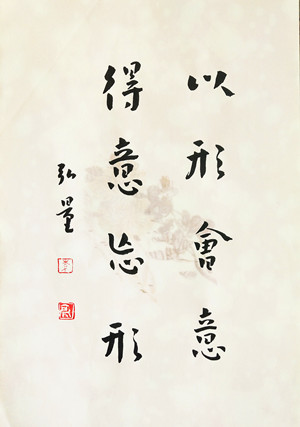 以形會意
得意忘形
弘量